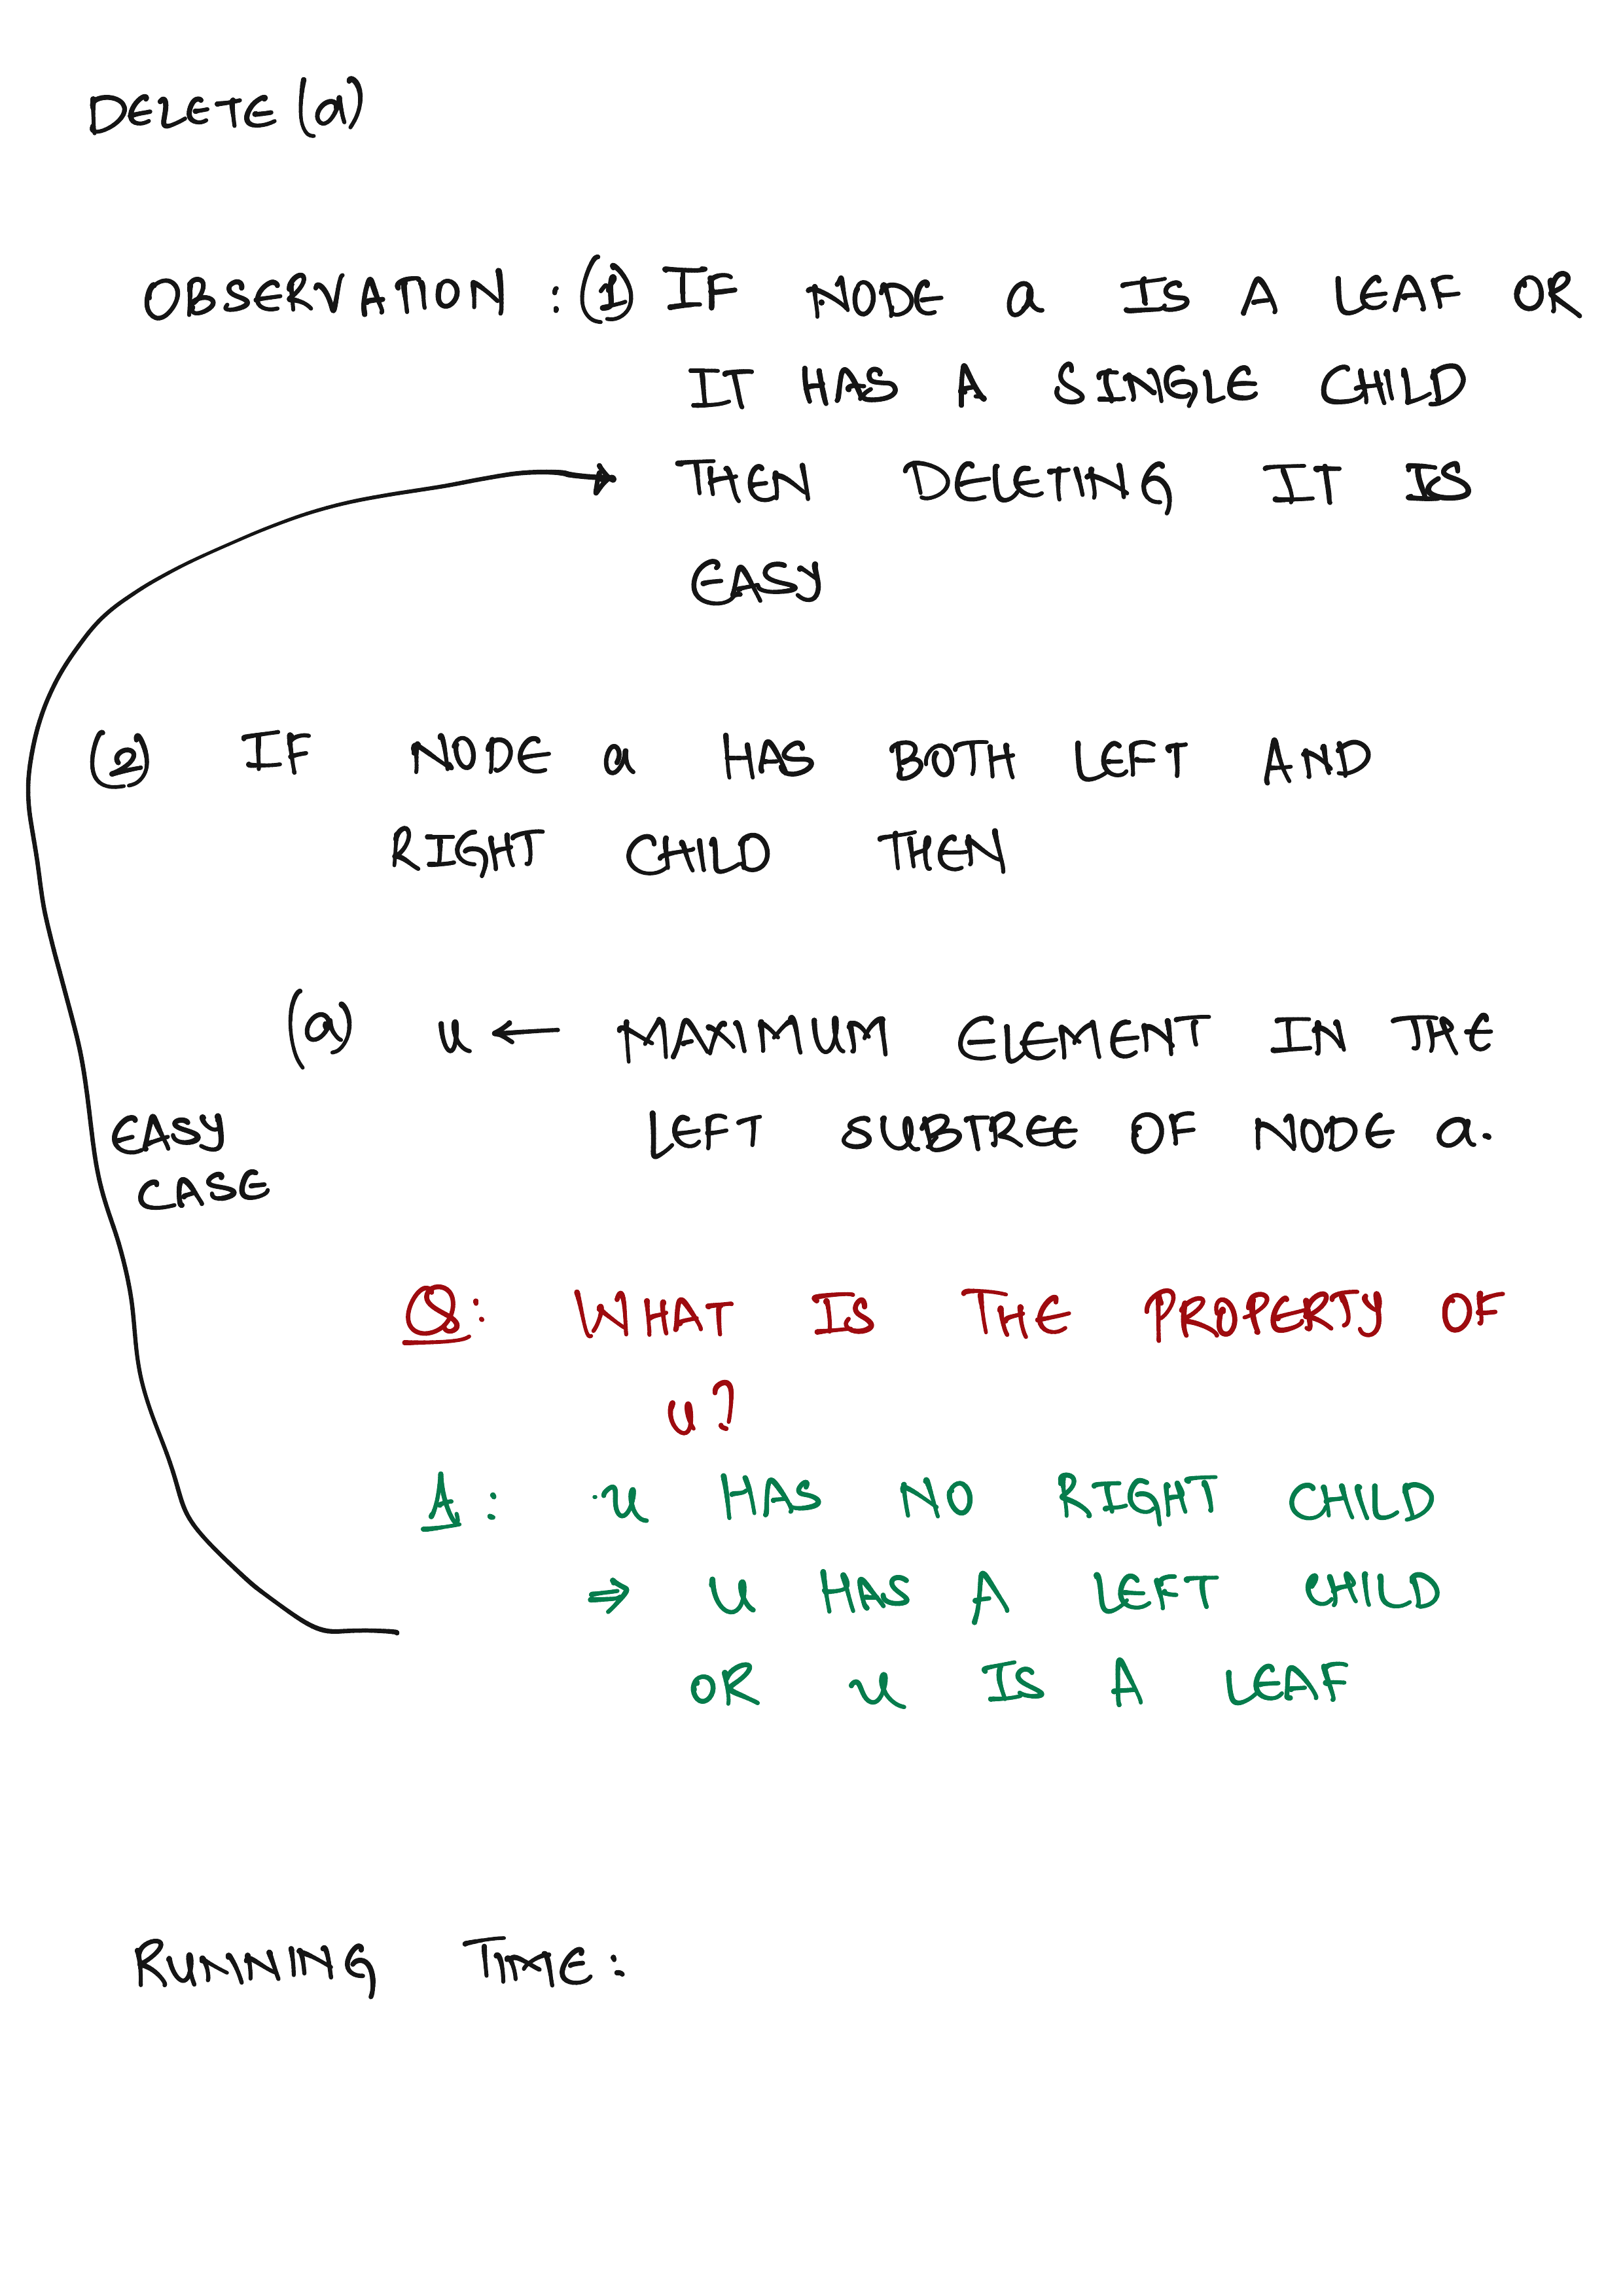 DELETE (a)
OBSERVATION : (1) IF NODE a IS A LEAF OR
IT HAS A SINGLE CHILD
THEN DELETING IT IS
EASY
(2) IF NODE a HAS BOTH LEFT AND
RIGHT CHILD THEN
(a) u ← MAXIMUM ELEMENT IN THE
LEFT SUBTREE OF NODE a.
EASY
CASE
Q: WHAT IS THE PROPERTY OF
u?
A: u HAS NO RIGHT CHILD
⇒ u HAS A LEFT CHILD
OR u IS A LEAF
RUNNING TIME: